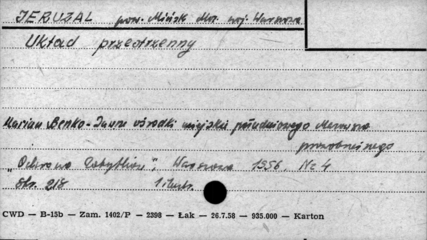 JERUZAL pow. Mińsk Maz. woj. Warszawa
Układ przestrzenny
Marian Benko - Dawne ośrodki miejskie południowego Mazowsza
"Ochrona Zabytków", Warszawa 1956, Nr 4
str. 218 1 ilustr.
CWD — B-15b — Zam. 1402/P — 2398 — Łak — 26.7.58 — 935.000 — Karton